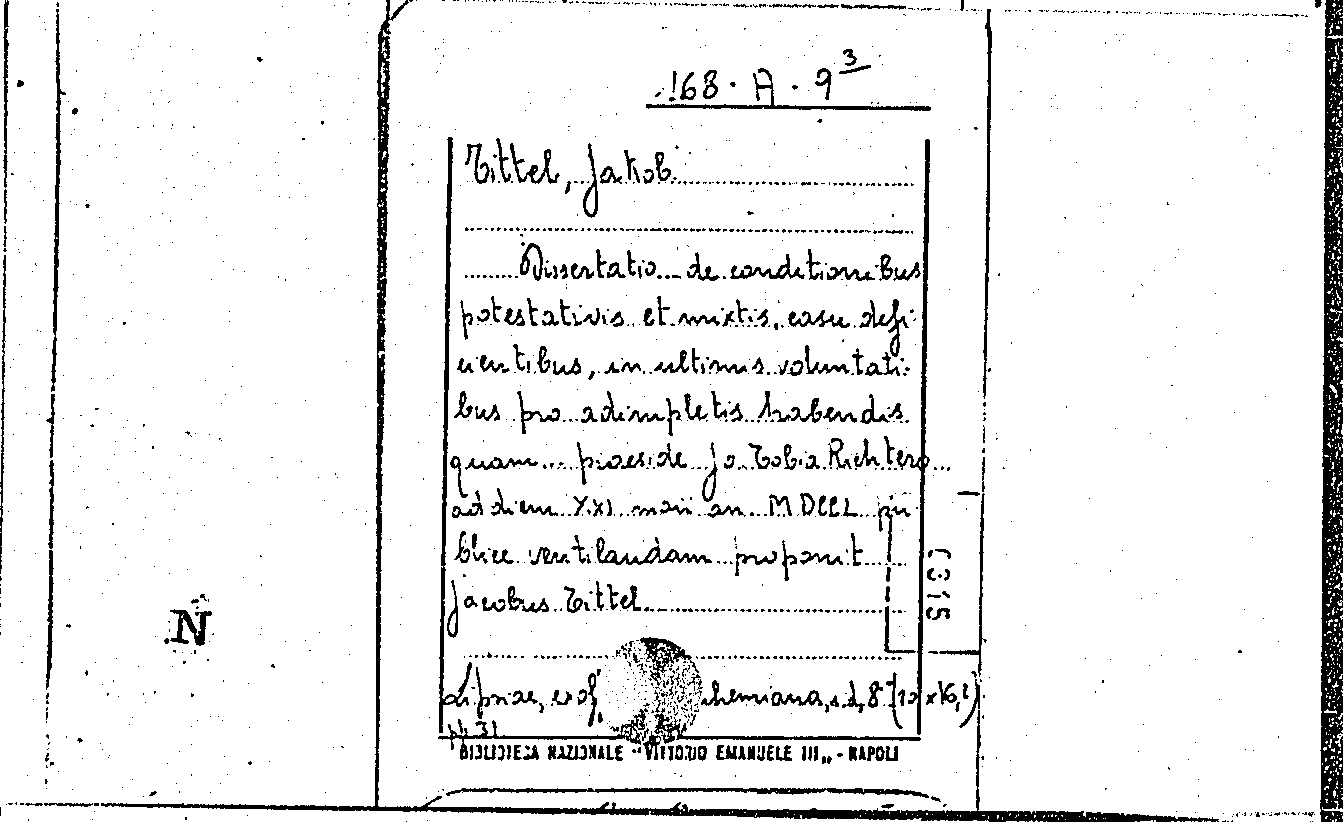 168 · A · 9³
Tittel, Jakob
Dissertatio de conditionibus
potestativis et mixtis, casu defi-
cientibus, in ultimis voluntati-
bus pro adimpletis habendis
quam... praeside Jo Tobia Richtero...
ad diem XXI maii an. MDCCL pu
blice ventilandam proponit
Jacobus Tittel
Lipsiae, ex of hemiana, s.d, 8°
pp. 31
BIBLIOTECA NAZIONALE "VITTORIO EMANUELE III„ - NAPOLI
N